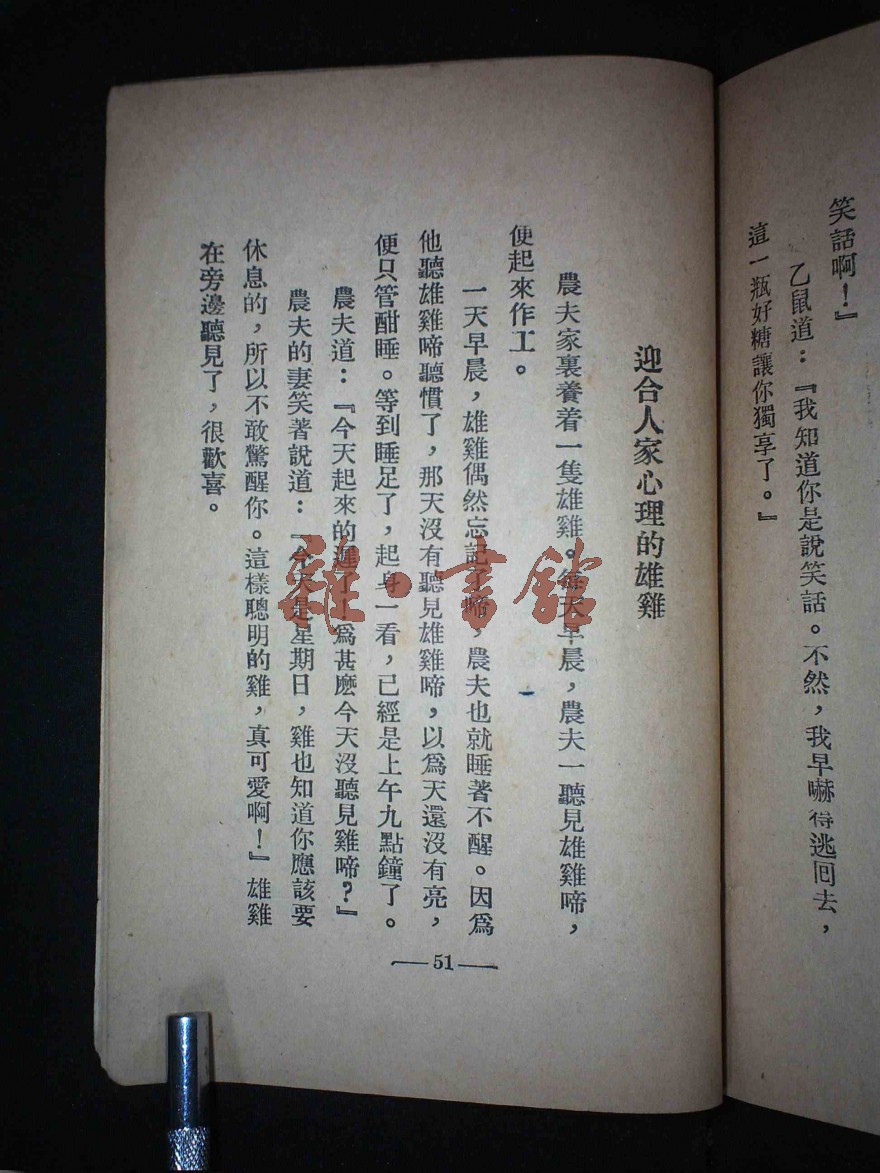 笑話啊！』
乙鼠道：『我知道你是說笑話。不然，我早嚇得逃回去，
這一瓶好糖讓你獨享了。』
迎合人家心理的雄雞
農夫家裏養着一隻雄雞。每天早晨，農夫一聽見雄雞啼，
便起來作工。
一天早晨，雄雞偶然忘記了啼，農夫也就睡著不醒。因爲
他聽雄雞啼聽慣了，那天沒有聽見雄雞啼，以爲天還沒有亮，
便只管酣睡。等到睡足了，起身一看，已經是上午九點鐘了。
農夫道：『今天起來的遲了！爲甚麽今天沒聽見雞啼？』
農夫的妻笑著說道：『今天是星期日，雞也知道你應該要
休息的，所以不敢驚醒你。這樣聰明的雞，真可愛啊！』雄雞
在旁邊聽見了，很歡喜。
— 51 —
雜·書館